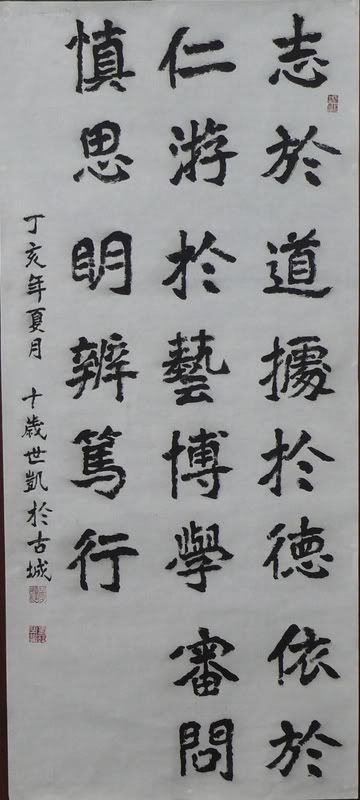 志於道據於德依於
仁游於藝博學審問
慎思明辨篤行
丁亥年夏月 十歲世凱於古城